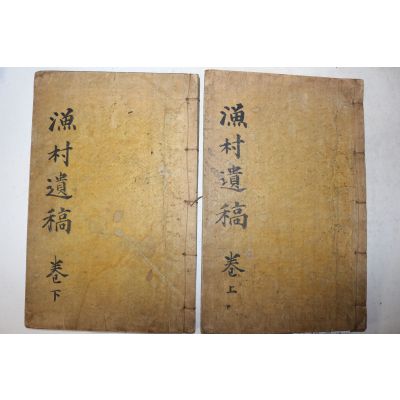 漁村遺稿 卷上
漁村遺稿 卷下